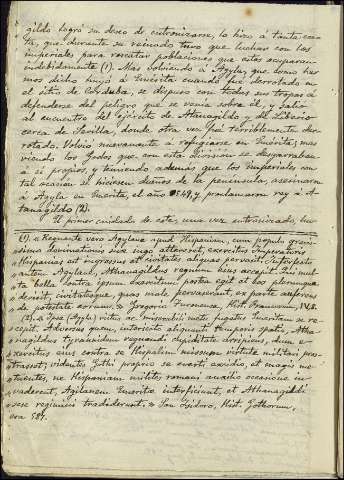 gildo logró su deseo de entronizarse, lo hizo á tanta cos-
ta, que durante su reinado tuvo que luchar con los
imperiales para rescatar poblaciones que estos ocuparan
indebidamente (1). Mas volviendo á Agyla, que como he-
mos dicho huyó á Emérita cuando fué derrotado en
el sitio de Córduba, se dispuso con todas sus tropas á
defenderse del peligro que se venía sobre él, y salió
al encuentro del ejército de Atanagildo y del Liberio
cerca de Sevilla, donde otra vez fué terriblemente der-
rotado. Volvió nuevamente á refugiarse en Emérita; mas
viendo los Godos que con esta division se desgarraban
á si propios, y temiendo además que los imperiales con
tal ocasion se hiciesen dueños de la península, asesinaron
á Agyla en Emerita, el año 549, y proclamaron rey á A-
tanagildo (2).
El primer cuidado de este, una vez entronizado, fué
(1). «Regnante vero Agilane apud Hispaniam, cum populum gravis-
simo dominationis suae jugo attereret, exercitus Imperatoris
Hispanias est ingressus et civitates aliquas pervasit. Interfecto
autem Agilane, Athanagildus regnum ejus accepit. Qui mul-
ta bella contra ipsum exercitum postea egit et eos plerumque
devicit, civitatesque, quas male pervaserant, ex parte auferens
de potestate eorum.» Gregorio Turonense, Hist. Francorum, IV, 8.
(2). «Ipse (Agyla) victus ac miserabili metu fugatus Emeritam se re-
cepit. Adversus quem, interjecto aliquanti temporis spatio, Atha-
nagildus tyrannidem regnandi cupiditate arripiens, dum e-
xercitus ejus contra se Hispalim missum virtute militari pros-
trasset, videntes Gothi proprio se everti excidio, et magis me-
tuentes, ne Hispaniam milites romani auxilio occasione in-
vaderent, Agilanem Emeritae interficiunt, et Athanagildi
sese regimini tradiderunt.» San Isidoro, Hist. Gothorum,
era 587.